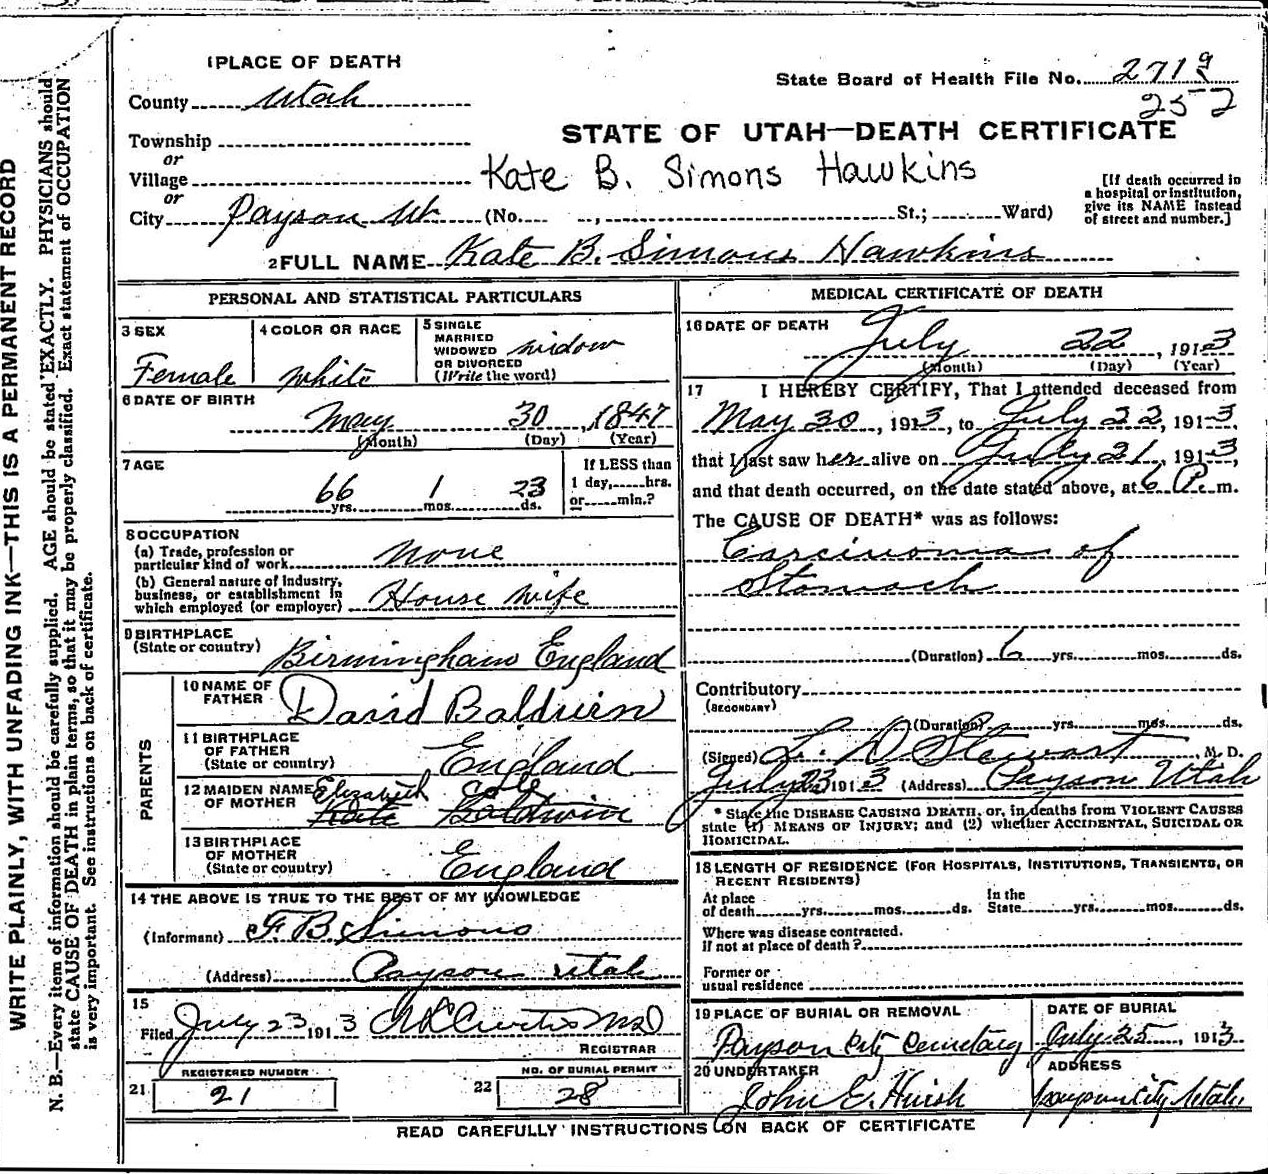 1 PLACE OF DEATH
State Board of Health File No. 271
252
County Utah
STATE OF UTAH—DEATH CERTIFICATE
Township
or
Village
Kate B. Simons Hawkins
[If death occurred in a hospital or institution, give its NAME instead of street and number.]
or
City Payson Ut (No. , St.; Ward)
2 FULL NAME Kate B. Simons Hawkins
PERSONAL AND STATISTICAL PARTICULARS
3 SEX
Female
4 COLOR OR RACE
white
5 SINGLE
MARRIED
WIDOWED
OR DIVORCED
(Write the word)
widow
6 DATE OF BIRTH
May 30, 1847
(Month) (Day) (Year)
7 AGE
66 yrs. 1 mos. 23 ds.
If LESS than
1 day, hrs.
or min.?
8 OCCUPATION
(a) Trade, profession or
particular kind of work None
(b) General nature of Industry,
business, or establishment in
which employed (or employer) House wife
9 BIRTHPLACE
(State or country) Birmingham England
PARENTS
10 NAME OF
FATHER David Baldwin
11 BIRTHPLACE
OF FATHER
(State or country) England
12 MAIDEN NAME
OF MOTHER
Elizabeth Cole
Kate Baldwin
13 BIRTHPLACE
OF MOTHER
(State or country) England
14 THE ABOVE IS TRUE TO THE BEST OF MY KNOWLEDGE
(Informant) F. B. Simons
(Address) Payson Utah
15
Filed July 23 1913 Curtis MD
REGISTRAR
21 REGISTERED NUMBER
21
22 NO. OF BURIAL PERMIT
28
MEDICAL CERTIFICATE OF DEATH
16 DATE OF DEATH
July 22, 1913
(Month) (Day) (Year)
17 I HEREBY CERTIFY, That I attended deceased from
May 30, 1913, to July 22, 1913,
that I last saw her alive on July 21, 1913,
and that death occurred, on the date stated above, at 6 P. m.
The CAUSE OF DEATH* was as follows:
Carcinoma of
Stomach
(Duration) 6 yrs. mos. ds.
Contributory
(SECONDARY)
(Duration) yrs. mos. ds.
(Signed) L. D. Stewart, M. D.
July 23 1913 (Address) Payson Utah
* State the DISEASE CAUSING DEATH, or, in deaths from VIOLENT CAUSES
state (1) MEANS OF INJURY; and (2) whether ACCIDENTAL, SUICIDAL OR
HOMICIDAL.
18 LENGTH OF RESIDENCE (FOR HOSPITALS, INSTITUTIONS, TRANSIENTS, OR
RECENT RESIDENTS)
At place
of death yrs. mos. ds.
In the
State yrs. mos. ds.
Where was disease contracted.
If not at place of death?
Former or
usual residence
19 PLACE OF BURIAL OR REMOVAL
Payson City Cemetary
DATE OF BURIAL
July 25, 1913
20 UNDERTAKER
John E. Huish
ADDRESS
Payson City Utah
READ CAREFULLY INSTRUCTIONS ON BACK OF CERTIFICATE
WRITE PLAINLY, WITH UNFADING INK—THIS IS A PERMANENT RECORD
N. B.—Every item of information should be carefully supplied. AGE should be stated EXACTLY. PHYSICIANS should
state CAUSE OF DEATH in plain terms, so that it may be properly classified. Exact statement of OCCUPATION
is very important. See instructions on back of certificate.